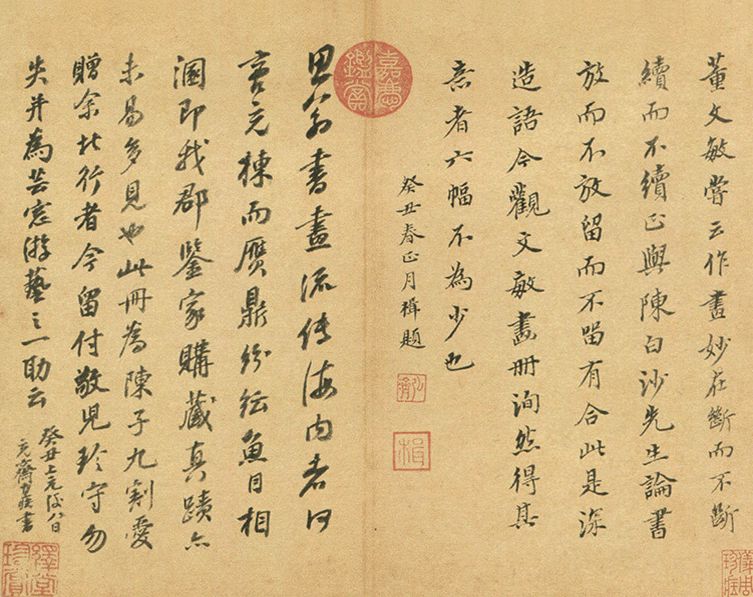 董文敏嘗云作畫妙在斷而不斷
續而不續正與陳白沙先生論書
放而不放留而不留有合此是深
造語今觀文敏畫冊洵然得其
意者六幅不為少也
癸丑春正月楫題
楫
嘉慶鑑賞
思翁書畫流傳海內者何
啻充棟而贗鼎紛紜魚目相
溷即我郡鑒家購藏真蹟亦
未易多見也此冊為陳子九割愛
贈余北行者今留付敬兒珍守勿
失并為芸窓游藝之一助云
癸丑上元後八日
齋書
繹堂珍賞